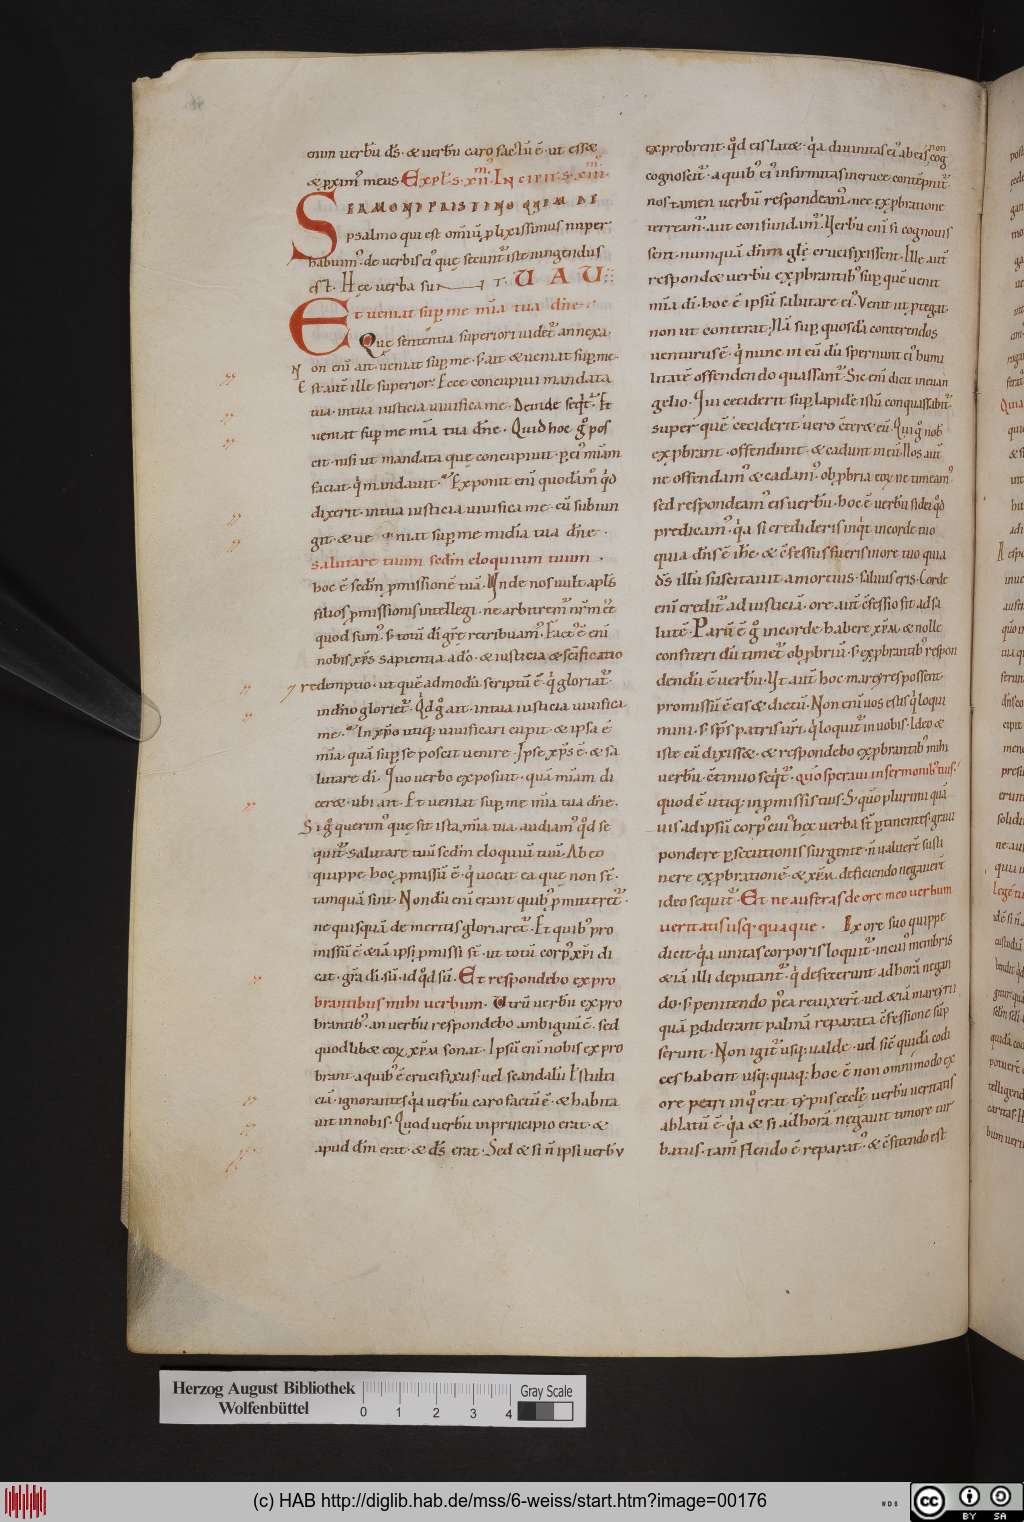 enim uerbũ dš · & uerbũ caro factũ ẽ · ut ess&
& pxim' meus Expl̃ · S · xii · Incipit · S · xiii ·
SERMONI PRISTINO QUEM DE
psalmo qui est omiũ plixissimus nuper
habuim' · de uerbis ei' quę secunt' iste iungendus
est · Hęc uerba sunt · UAU
Et ueniat sup me mĩa tua dñe ·
Quę sententia superiori uidet' annexa ·
Non enĩ ait · ueniat sup me · s· ait & ueniat sup me ·
Est aut̃ ille superior · Ecce concupiui mandata
tua · in tua iusticia uiuifica me · Deinde seqt' · Et
ueniat sup me mĩa tua dñe · Quid hoc g° pos
cit · nisi ut mandata quę concupiuit · p ei' mĩam
faciat · q mandauit · Exponit enĩ quodãm° qd
dixerit · in tua iusticia uiuifica me · cũ subiun
git · & ueniat sup me mĩdia tua dñe ·
salutare tuum scd̃m eloquium tuum ·
hoc ẽ scd̃m pmissionẽ tuã · Unde nos uult apl̃s
filios pmissionis intellegi · ne arbitrem' nrm ẽẽ
quod sum' · s· totũ di grę retribuam' · Fact' ẽ enĩ
nobis xps sapientia a do · & iusticia & scificatio
& redemptio · ut quẽadmodũ scriptũ ẽ · q gloriat' ·
in dño gloriet' · Qd g° ait · in tua iusticia uiuifica
me · In xpo utiq; uiuificari cupit · & ipsa ẽ
mĩa · quã sup se poscit uenire · Ipse xps ẽ · & sa
lutare di · Quo uerbo exposuit · quã mĩam di
cer& · ubi ait · Et ueniat sup me mĩa tua dñe ·
Si g° querim' quę sit ista mĩa tua · audiam' qd se
quit' · salutare tuũ scd̃m eloquiũ tuũ · Ab eo
quippe hoc pmissũ ẽ · q uocat ea que non st̃ ·
tamquã sint · Nondũ enĩ erant quib' pmitteret' ·
ne quisquã de meritis gloriaret' · Et quib' pro
missũ ẽ · &iã ipsi pmissi st̃ · ut totũ corp' xpi di
cat · grã di sũ · id qd sũ · Et respondebo expro
brantibus mihi uerbum · Utrũ uerbũ expro
brantib' · an uerbũ respondebo ambiguũ ẽ · sed
quodlib& eoꝝ xpm sonat · Ipsũ enĩ nobis expro
brant · a quib' ẽ crucifixus · uel scandalũ l stulti
ciã · ignorantes qa uerbũ caro factũ ẽ · & habita
uit in nobis · Quod uerbũ in principio erat · &
apud dm̃ erat · & dš erat · Sed & si ñ ipsi uerbũ
exprobrent · qd eis lat& · qa diuinitas ei' ab eis non cog
cognoscit' · a quib' ei' infirmitas in cruce contẽpnit' ·
nos tamen uerbũ respondeam' · nec expbratione
terream' · aut confundam' · Uerbũ enĩ si cognouis
sent · numquã dñm glę crucifixissent · Ille aut̃
respond& uerbũ expbrantib' · sup quẽ uenit
mĩa di · hoc ẽ ipsũ salutare ei' · Venit ut ptegat ·
non ut conterat · Nã sup quosdã conterendos
uenturus ẽ · q nunc in eũ dũ spernunt ei' humi
litatẽ offendendo quassant' · Sic enĩ dicit in euan
gelio · Qui ceciderit sup lapidẽ istũ conquassabit' ·
super quẽ ceciderit uero conter& eũ · Qui g° nob
expbrant · offendunt · & cadunt in eũ · Nos aut̃
ne offendam' & cadam' · obpbria eoꝝ ne timeam'
sed respondeam' eis uerbũ · hoc ẽ uerbũ fidei qd
predicam' · qa si credideris inqt in corde tuo
quia dñs ẽ ihs · & cõfessus fueris in ore tuo quia
dš illũ suscitauit a mortuis · saluus eris · Corde
enĩ credit' ad iusticiã · ore aut̃ cõfessio fit ad sa
lutẽ · Parũ ẽ g° in corde habere xpm & nolle
confiteri dũ timet' obpbriũ · s· expbrantib' respon
dendũ ẽ uerbũ · Ut aut̃ hoc martyres possent
promissũ ẽ eis & dictũ · Non enĩ uos estis q loqui
mini · s· sp̃s patris uri · q loquit' in uobis · Ideo &
iste cũ dixiss& · & respondebo expbrantib' mihi
uerbũ · cõtinuo seqt' · quo speraui in sermonib' tuis ·
quod ẽ utiq; in pmissis tuis · S· quo plurimi quã
uis ad ipsũ corp' cui' hęc uerba st̃ ptinentes · graui
pondere psecutionis surgente · ñ ualuert̃ susti
nere expbrationẽ · & xpm deficiendo negauert̃
ideo sequit' · Et ne auferas de ore meo uerbum
ueritatis usq· quaque · Ex ore suo quippe
dicit · qa unitas corporis loquit' · in cui' membris
&iã illi deputant' · q defecerunt ad horã negan
do · s· penitendo p'ea reuixert̃ · uel &iã martyrii
quã pdiderant palmã reparata cõfessione sũp
serunt · Non igit' usq; ualde · uel sic̃ quidã codi
ces habent usq; quaq; hoc ẽ non omnimodo ex
ore petri in q° erat typus ęcclę uerbũ ueritatis
ablatũ ẽ · qa & si ad horã negauit timore tur
batus · tam̃ flendo ẽ reparat' · & cõfitendo est
Herzog August Bibliothek
Wolfenbüttel
0 1 2 3 4
Gray Scale
(c) HAB http://diglib.hab.de/mss/6-weiss/start.htm?image=00176
WDB
cc
BY SA